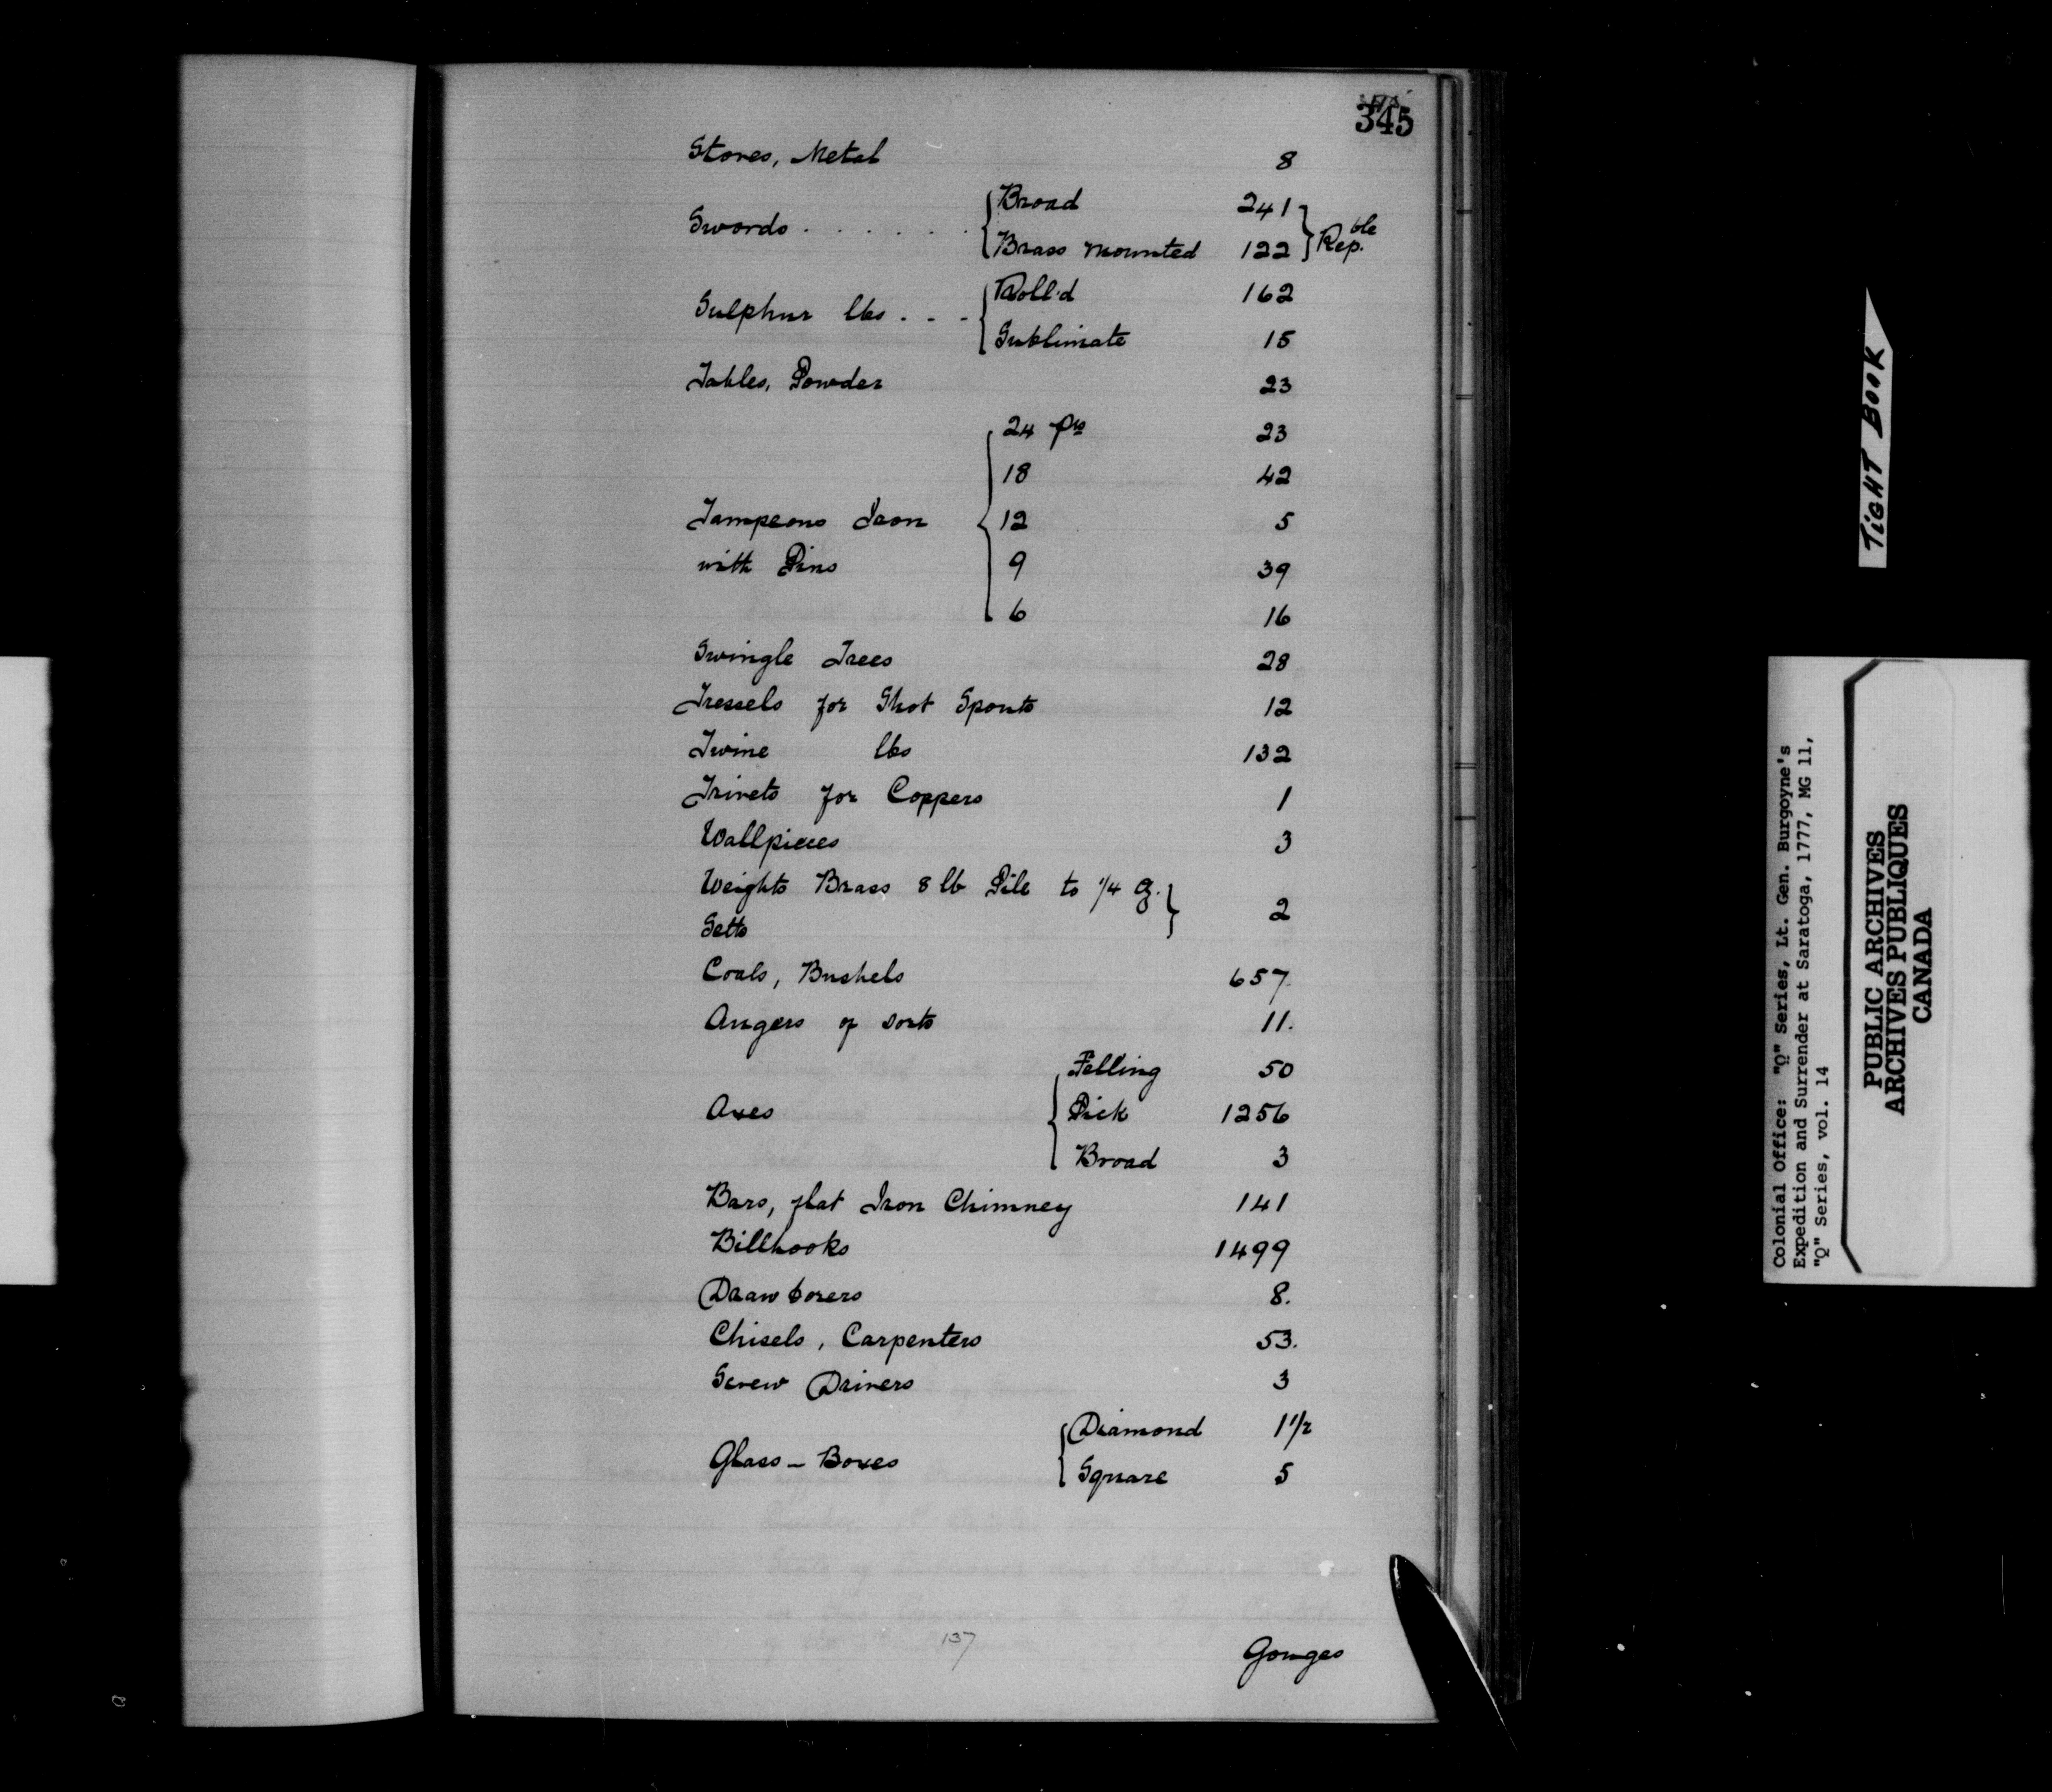 345
Stoves, Metal 8
Swords . . . . . . { Broad 241 } Rep.ble
Brass mounted 122
Sulphur lbs . - - { Roll'd 162
Sublimate 15
Tables, Powder 23
24 prs 23
18 42
Tampeons Iron { 12 5
with Pins 9 39
6 16
Swingle Trees 28
Tressels for Shot Spouts 12
Twine lbs 132
Trivets for Coppers 1
Wallpieces 3
Weights Brass 8 lb Pile to 1/4 oz. }
Setts 2
Coals, Bushels 657
Augers of sorts 11.
Felling 50
Axes { Pick 1256
Broad 3
Bars, flat Iron Chimney 141
Billhooks 1499
Draw borers 8.
Chisels, Carpenters 53.
Screw Drivers 3
Glass - Boxes { Diamond 1 1/2
Square 5
137
Gouges
TIGHT BOOK
Colonial Office: "Q" Series, Lt. Gen. Burgoyne's
Expedition and Surrender at Saratoga, 1777, MG 11,
"Q" Series, vol. 14
PUBLIC ARCHIVES
ARCHIVES PUBLIQUES
CANADA